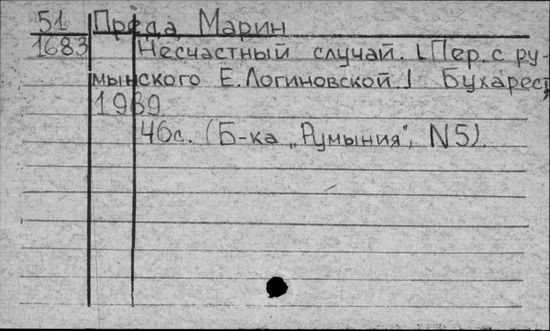 51 Преда Марин
1683 Несчастный случай. [Пер. с ру-
мынского Е. Логиновской.] Бухарест,
1969
46с. (Б-ка „Румыния", N5).